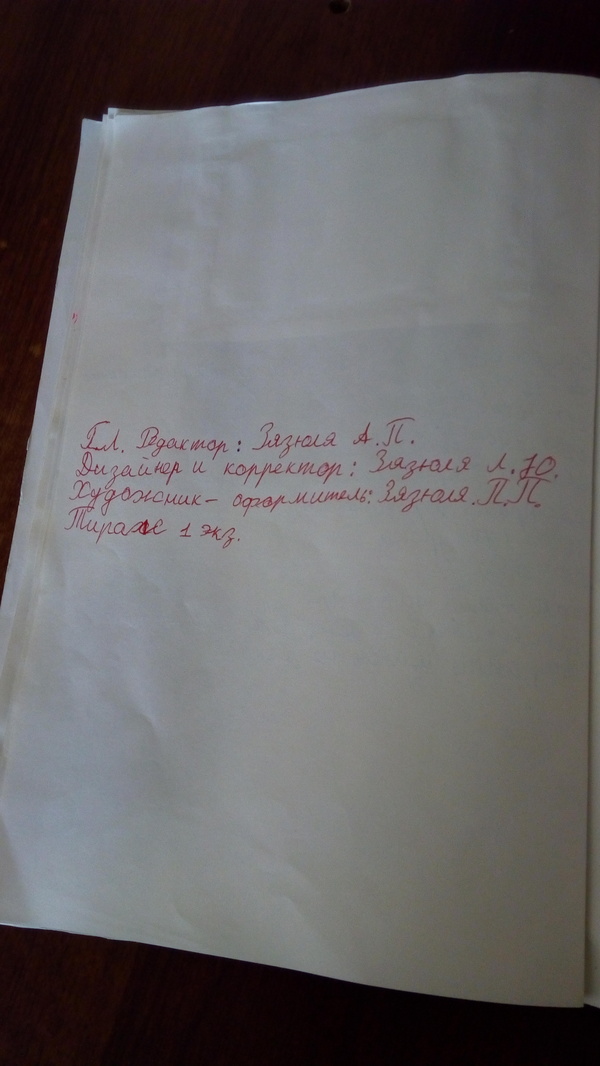 Гл. Редактор: Зязюля А.П.
Дизайнер и корректор: Зязюля Л.Ю.
Художник - оформитель: Зязюля П.П.
Тираж 1 экз.